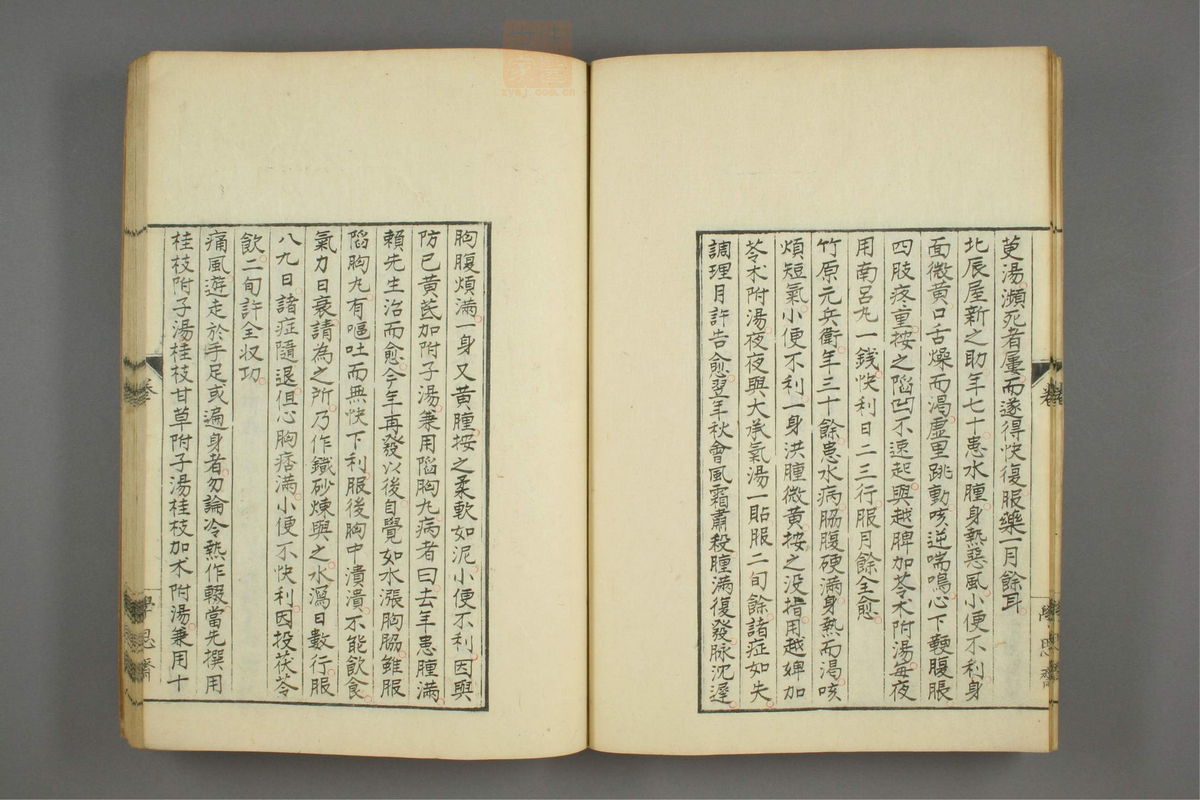 萸湯瀕死者屢而遂得快復服藥一月餘耳
北辰屋新之助年七十患水腫身熱惡風小便不利身
面微黄口舌燥而渴虛里跳動咳逆喘鳴心下鞕腹脹
四肢疼重按之陷凹不速起與越脾加苓朮附湯每夜
用南呂丸一錢快利日二三行服月餘全愈
竹原元兵衛年三十餘患水病脇腹硬滿身熱而渴咳
煩短氣小便不利一身洪腫微黄按之没指用越婢加
苓朮附湯夜夜與大承氣湯一貼服二旬餘諸症如失
調理月許告愈翌年秋會風霜肅殺腫滿復發脉沈遲
胸腹煩滿一身又黄腫按之柔軟如泥小便不利因與
防已黄芪加附子湯兼用陷胸丸病者曰去年患腫滿
賴先生治而愈今年再發以後自覺如水漲胸脇雖服
陷胸丸有嘔吐而無快下利服後胸中潰潰不能飲食
氣力日衰請為之所乃作鐵砂煉與之水瀉日數行服
八九日諸症隨退但心胸痞滿小便不快利因投茯苓
飲二旬許全収功
痛風遊走於手足或遍身者勿論冷熱作輟當先撰用
桂枝附子湯桂枝甘草附子湯桂枝加朮附湯兼用十
卷
學思齋
zysj.com.cn